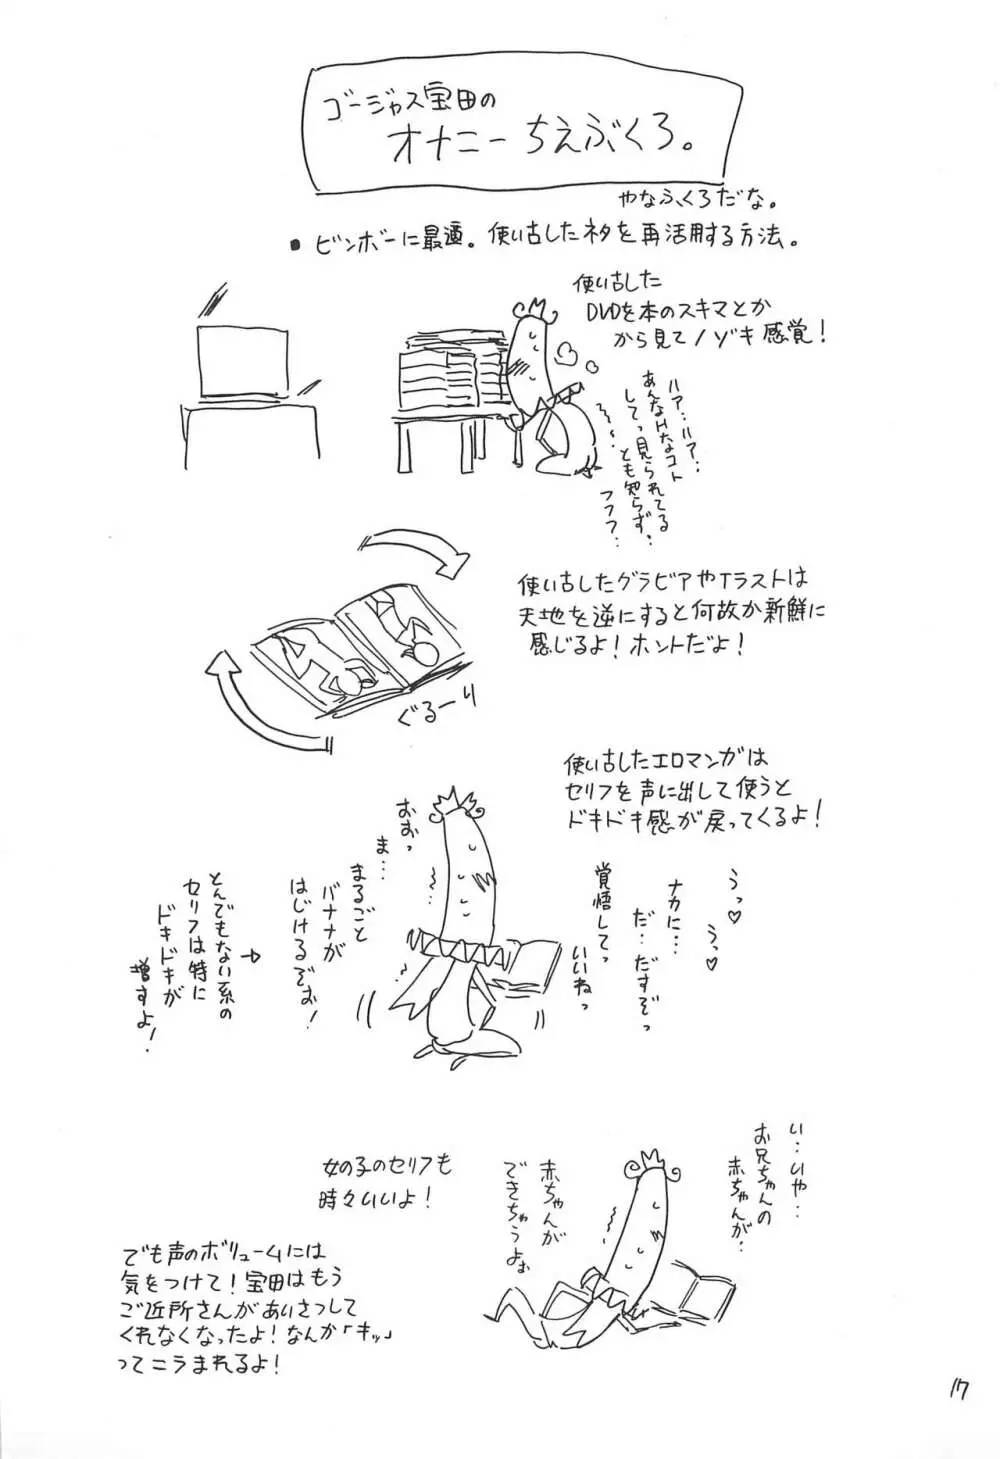 ゴージャス宝田の
オナニーちえぶくろ。
やなふくろだな。
●ビンボーに最適。使い古したネタを再活用する方法。
使い古した
DVDを本のスキマとか
から見てノゾキ感覚！
ハア…ハア…
あんなHなコト
してっ見られてる
とも知らず…
フフフ…
使い古したグラビアやイラストは
天地を逆にすると何故か新鮮に
感じるよ！ホントだよ！
ぐるーり
使い古したエロマンガは
セリフを声に出して使うと
ドキドキ感が戻ってくるよ！
うっ♡
うっ♡
ナカに…
だ…だすぞっ
覚悟してっ
いいねっ
おおっ
ま…
まるごと
バナナが
はじけるぞぉ！
とんでもない系の
セリフは特に
ドキドキが
増すよ！
い…いや…
お兄ちゃんの
赤ちゃんが…
赤ちゃんが
できちゃうよぉ
女の子のセリフも
時々いいよ！
でも声のボリュームには
気をつけて！宝田はもう
ご近所さんがあいさつして
くれなくなったよ！なんか「キッ」
ってニラまれるよ！
17